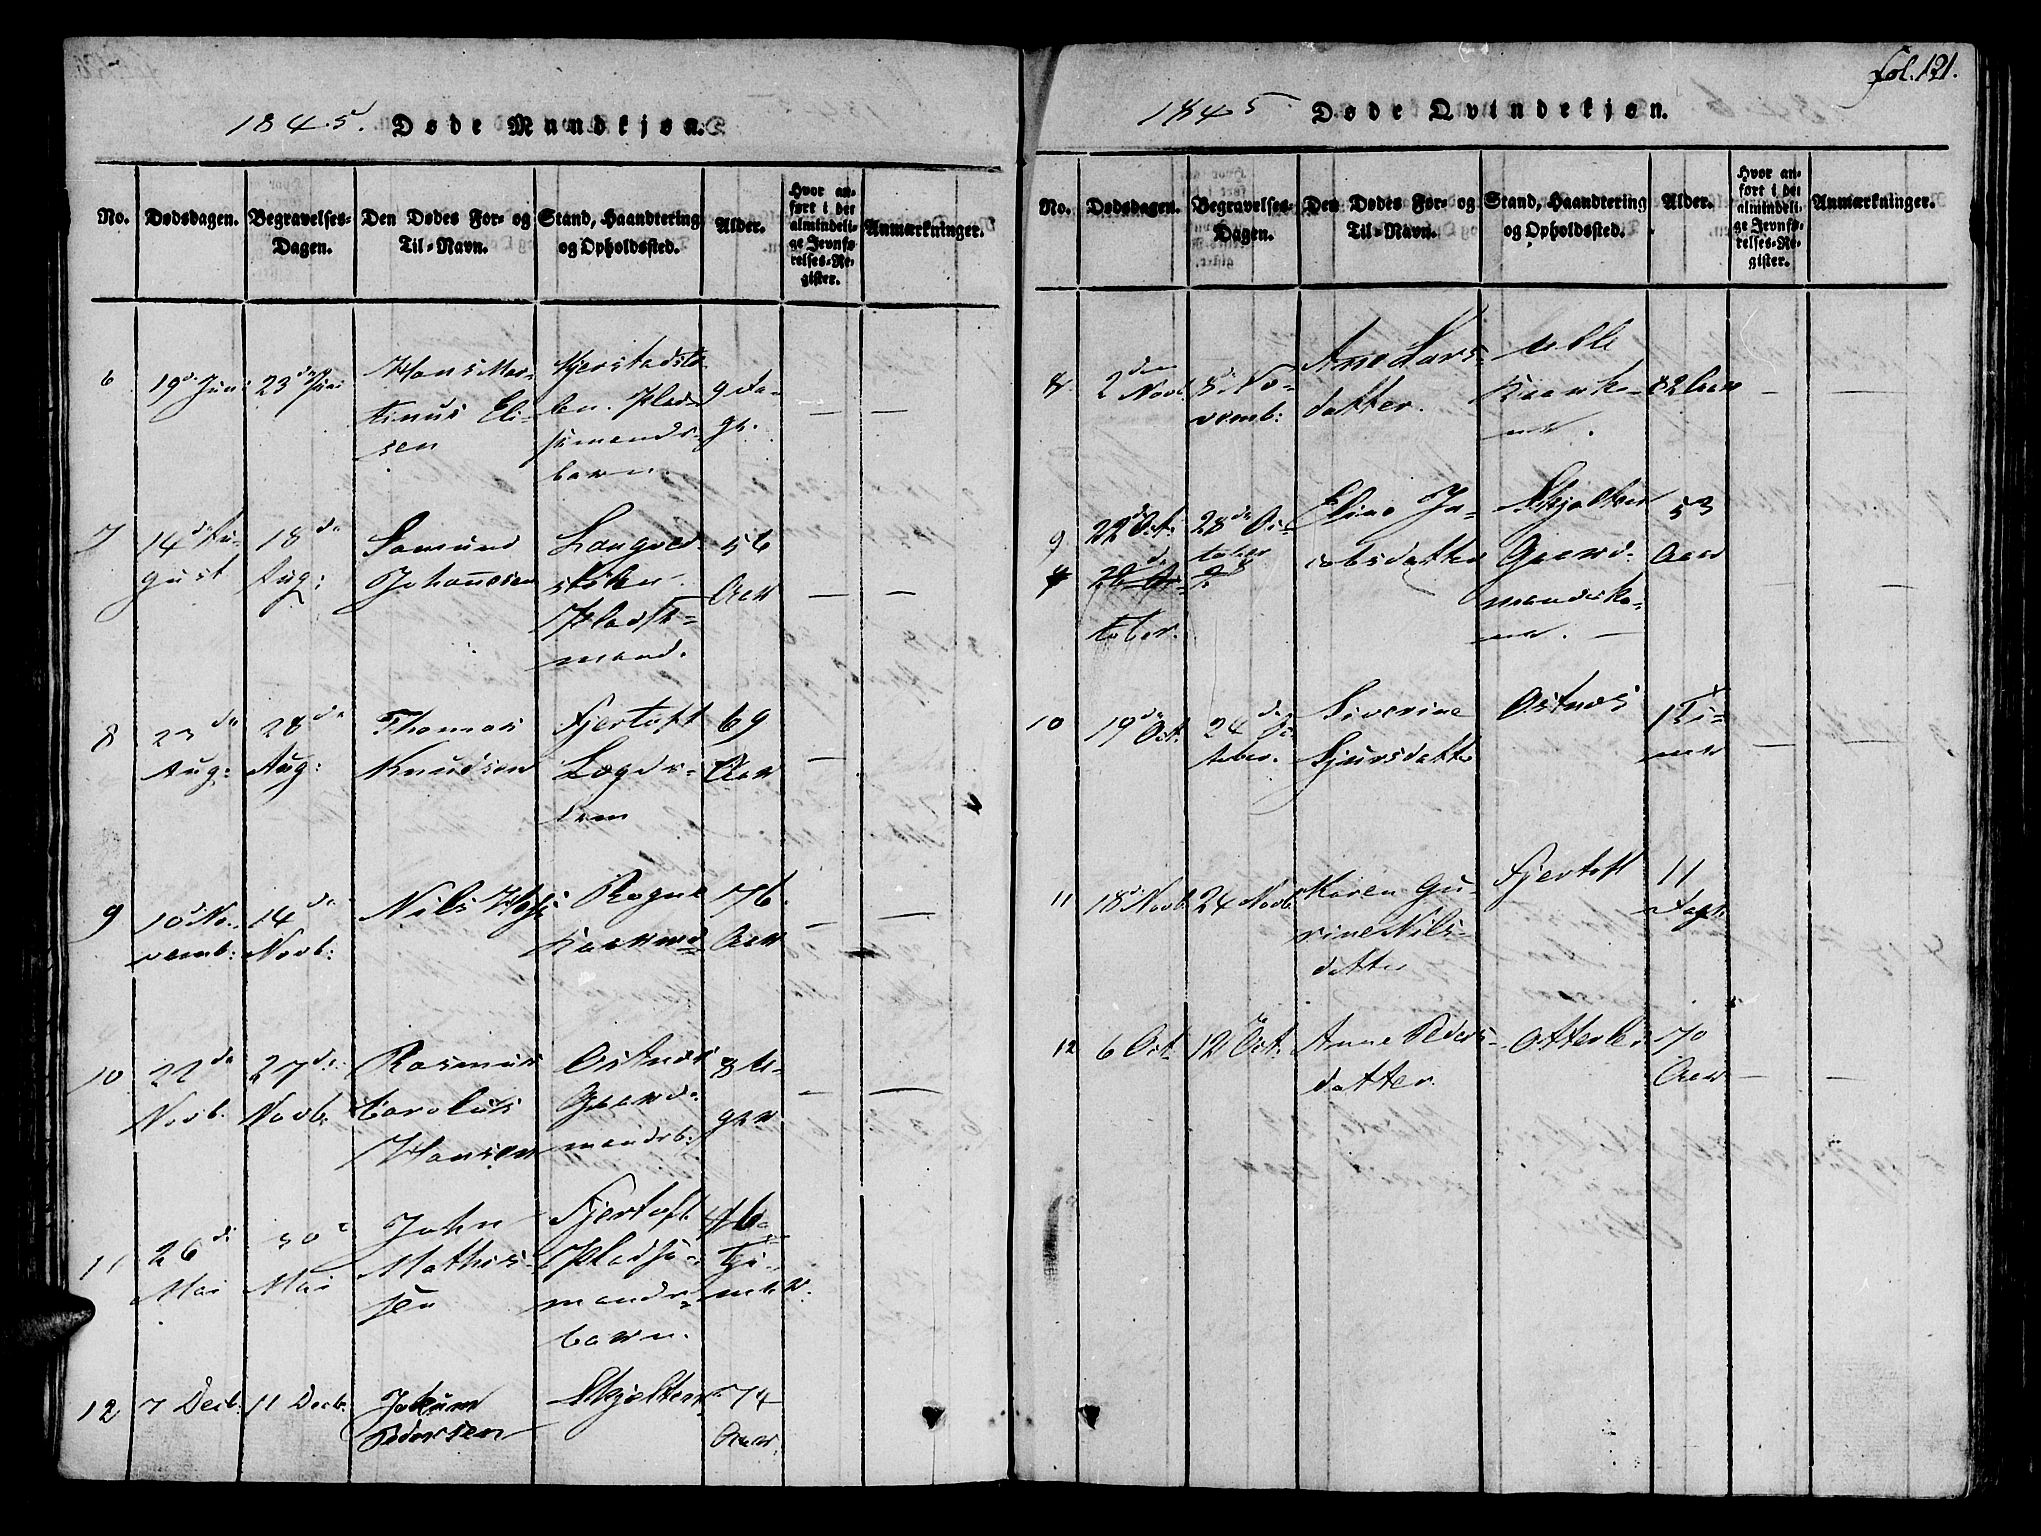 1845. Døde Mandkjøn.
No.
Dødsdagen.
Begravelses-
Dagen.
Den Dødes For- og
Til-Navn.
Stand, Haandtering
og Opholdssted.
Alder.
Hvor an-
ført i det
almindeli-
ge Jevnfø-
relses-Re-
gister.
Anmærkninger.
6 19d Juni 23de Juni
Hans Mar-
tinus Eli-
sen
Plads-
mands-
barn.
9 Da-
ge.
7 14d Au-
gust
18de
Aug:
Samund
Johannesen
Langved-
Plads-
mand.
56
Aar
8 23de
Aug:
28de
Aug:
Thomas
Knudsen
Fjertoft
Lægds-
lem
69
Aar
9 10d No-
vemb:
14de
Novb:
Nils
Rogne
76
Aar
10 22de
Novb.
27de
Novb:
Rasmus
Carolus
Hansen
Østnæs
Gaard-
mandsb:
8 U-
ger
11 26de
Mai
30d
Mai
John
Mathis-
sen
Fjertoft
Pladsz-
mands-
barn.
Ti-
mer.
12 7 Decb: 11 Decb.
Jakum
Pedersen
Skjelten
74
Aar.
fol. 121.
1845 Døde Qvindekjøn.
No.
Dødsdagen.
Begravelses-
Dagen.
Den Dødes For- og
Til-Navn.
Stand, Haandtering
og Opholdssted.
Alder.
Hvor an-
ført i det
almindeli-
ge Jevnfø-
relses-Re-
gister.
Anmærkninger.
8. 2den Novb 8d No-
vemb:
Ane Lars-
datter.
Ulle
82 Aar
9 22d Oct. 28de Oc-
tober
tober.
Eline Ja-
cobsdatter
Skjelten
Gaard-
mandsko-
ne.
53
Aar
10 19de Oct. 24de Oc-
tober.
Siverine
Sjursdatter
Østnæs
1 Ti-
me
11 18d Novb. 24 Novb.
Karen Gu-
rine Nils-
datter
Fjertoft
11
Dage
12 6 Oct. 12 Oct.
Anne Peders-
datter.
Otterlei
70
Aar